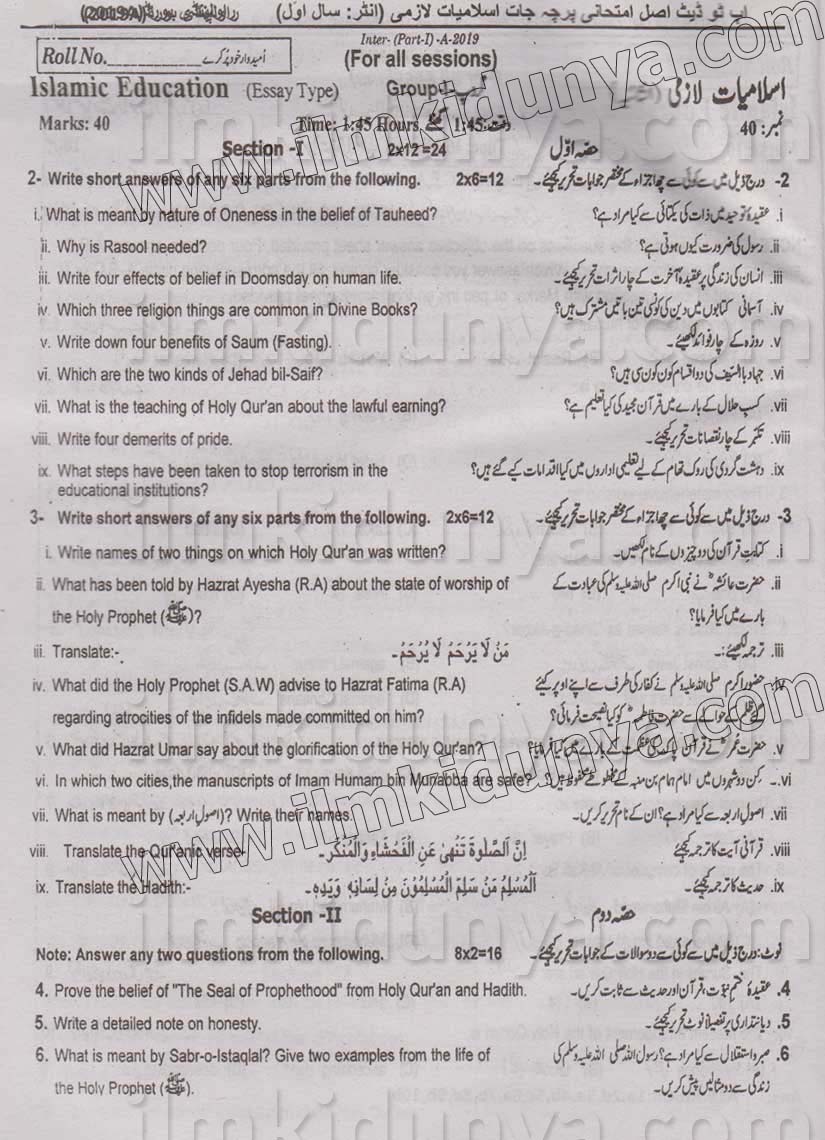 اپ ٹو ڈیٹ اصل امتحانی پرچہ جات اسلامیات لازمی (انٹر: سال اوّل) راولپنڈی بورڈ (2019A)
Inter- (Part-I) -A-2019
Roll No.____________ اُمیدوار خود پُر کرے
(For all sessions)
Islamic Education (Essay Type) Group اسلامیات لازمی
Marks: 40 Time: 1:45 Hours وقت: 1:45 گھنٹے نمبر: 40
Section -I 2x12 =24 حصّہ اوّل
2- Write short answers of any six parts from the following. 2x6=12 2- درج ذیل میں سے کوئی سے چھ اجزاء کے مختصر جوابات تحریر کیجئے۔
i. What is meant by nature of Oneness in the belief of Tauheed? i. عقیدۂ توحید میں ذات کی یکتائی سے کیا مراد ہے؟
ii. Why is Rasool needed? ii. رسول کی ضرورت کیوں ہوتی ہے؟
iii. Write four effects of belief in Doomsday on human life. iii. انسان کی زندگی پر عقیدۂ آخرت کے چار اثرات تحریر کیجئے۔
iv. Which three religion things are common in Divine Books? iv. آسمانی کتابوں میں دین کی کونسی تین باتیں مشترک ہیں؟
v. Write down four benefits of Saum (Fasting). v. روزہ کے چار فوائد لکھیئے۔
vi. Which are the two kinds of Jehad bil-Saif? vi. جہاد بالسّیف کی دو اقسام کون کون سی ہیں؟
vii. What is the teaching of Holy Qur'an about the lawful earning? vii. کسبِ حلال کے بارے میں قرآن مجید کی کیا تعلیم ہے؟
viii. Write four demerits of pride. viii. تکبّر کے چار نقصانات تحریر کیجئے۔
ix. What steps have been taken to stop terrorism in the educational institutions? ix. دہشت گردی کی روک تھام کے لیے تعلیمی اداروں میں کیا اقدامات کیے گئے ہیں؟
3- Write short answers of any six parts from the following. 2x6=12 3- درج ذیل میں سے کوئی سے چھ اجزاء کے مختصر جوابات تحریر کیجئے۔
i. Write names of two things on which Holy Qur'an was written? i. کتابتِ قرآن کی دو چیزوں کے نام لکھیں۔
ii. What has been told by Hazrat Ayesha (R.A) about the state of worship of ii. حضرت عائشہؓ نے نبی اکرم صلی اللہ علیہ وسلم کی عبادت کے
the Holy Prophet (ﷺ)? بارے میں کیا فرمایا؟
iii. Translate:- مَنْ لَا يَرْحَمُ لَا يُرْحَمُ۔ iii. ترجمہ لکھیئے:۔
iv. What did the Holy Prophet (S.A.W) advise to Hazrat Fatima (R.A) iv. حضور اکرم صلی اللہ علیہ وسلم نے کفار کی طرف سے اپنے اوپر کیئے
regarding atrocities of the infidels made committed on him? گئے ظلم کے حوالے سے حضرت فاطمہؓ کو کیا نصیحت فرمائی؟
v. What did Hazrat Umar say about the glorification of the Holy Qur'an? v. حضرت عمرؓ نے قرآن پاک کی عظمت کے بارے میں کیا فرمایا؟
vi. In which two cities,the manuscripts of Imam Humam bin Munabba are safe? vi. کِن دو شہروں میں امام ہمام بن منبہ کے مخطوطے محفوظ ہیں؟
vii. What is meant by (اصولِ اربعہ)? Write their names. vii. اصولِ اربعہ سے کیا مراد ہے؟ ان کے نام تحریر کریں۔
viii. Translate the Qur'anic verse- اِنَّ الصَّلٰوةَ تَنْهٰى عَنِ الْفَحْشَاءِ وَالْمُنْكَرِ۔ viii. قرآنی آیت کا ترجمہ کیجئے
ix. Translate the Hadith:- اَلْمُسْلِمُ مَنْ سَلِمَ الْمُسْلِمُوْنَ مِنْ لِسَانِهٖ وَيَدِهٖ۔ ix. حدیث کا ترجمہ کیجئے۔
Section -II حصّہ دوم
Note: Answer any two questions from the following. 8x2=16 نوٹ: درج ذیل میں سے کوئی سے دو سوالات کے جوابات تحریر کیجئے۔
4. Prove the belief of "The Seal of Prophethood" from Holy Qur'an and Hadith. 4. عقیدۂ ختمِ نبوّت، قرآن اور حدیث سے ثابت کریں۔
5. Write a detailed note on honesty. 5. دیانتداری پر تفصیلاً نوٹ تحریر کیجئے۔
6. What is meant by Sabr-o-Istaqlal? Give two examples from the life of 6. صبر و استقلال سے کیا مراد ہے؟ رسول اللہ صلی اللہ علیہ وسلم کی
the Holy Prophet (ﷺ). زندگی سے دو مثالیں پیش کریں۔
www.ilmkidunya.com
www.ilmkidunya.com
ilmkidunya.com